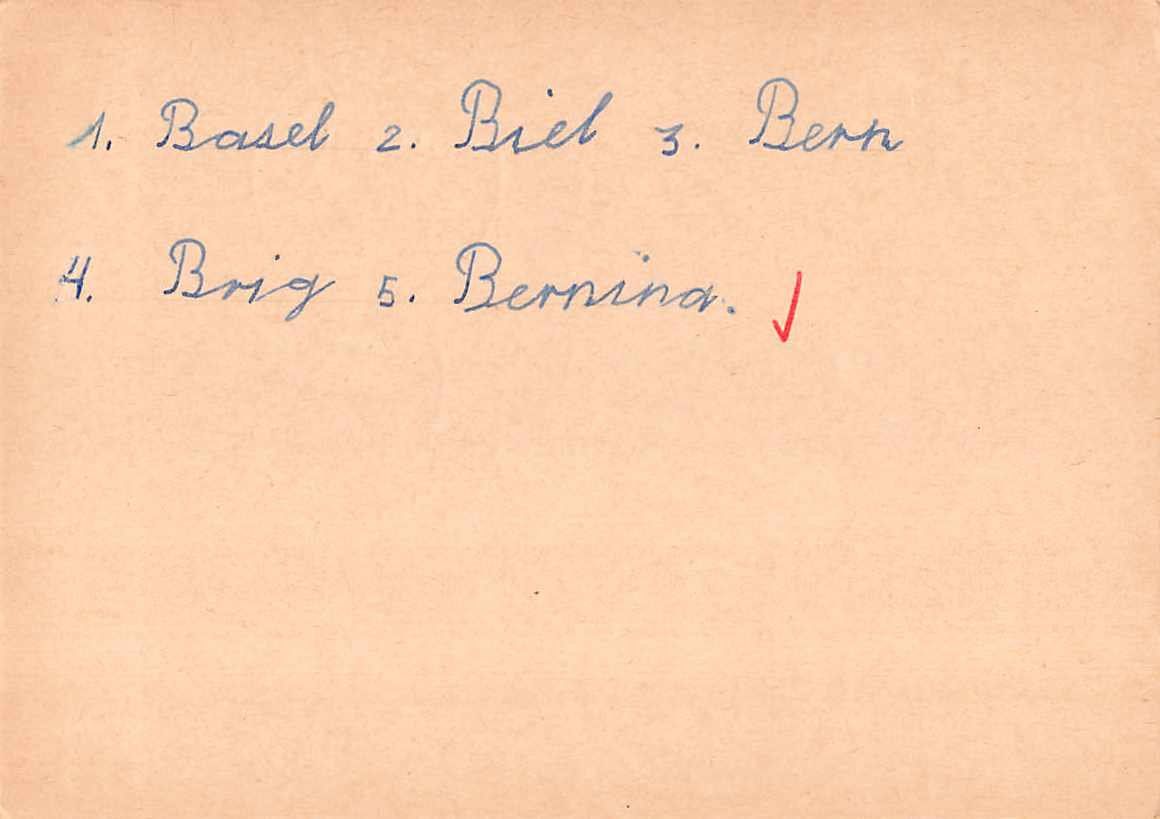 1. Basel 2. Biel 3. Bern
4. Brig 5. Bernina.